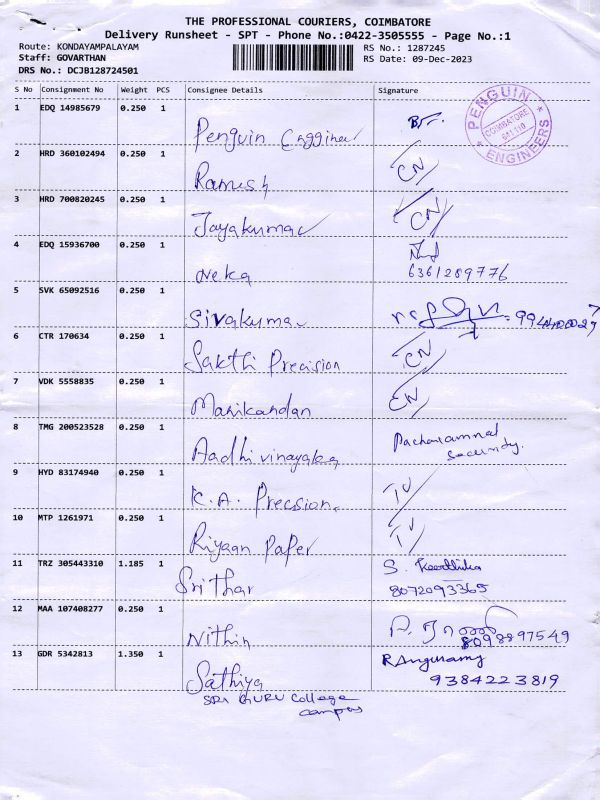 THE PROFESSIONAL COURIERS, COIMBATORE
Delivery Runsheet - SPT - Phone No.:0422-3505555 - Page No.:1
Route: KONDAYAMPALAYAM
RS No.: 1287245
Staff: GOVARTHAN
RS Date: 09-Dec-2023
DRS No.: DCJB128724501
S No Consignment No Weight PCS Consignee Details Signature
1 EDQ 14985679 0.250 1
Penguin Enggineer
PENGUIN ENGINEERS
COIMBATORE
641 110
2 HRD 360102494 0.250 1
Ramesh CN
3 HRD 700820245 0.250 1
Jayakumar CN
4 EDQ 15936700 0.250 1
neka 6361289776
5 SVK 65092516 0.250 1
Sivakumar
6 CTR 170634 0.250 1
Sakthi Precision CN
7 VDK 5558835 0.250 1
Manikandan CN
8 TMG 200523528 0.250 1
Aadhi vinayaka Pachaiammal
Security.
9 HYD 83174940 0.250 1
K.A. Precsion. IV
10 MTP 1261971 0.250 1
Riyaan Paper IV
11 TRZ 305443310 1.185 1
Srithar S. Keerthika
8072093365
12 MAA 107408277 0.250 1
Nithin 8098897549
13 GDR 5342813 1.350 1
Sathiya R Anguramy
9384223819
SRI GURU College
campus